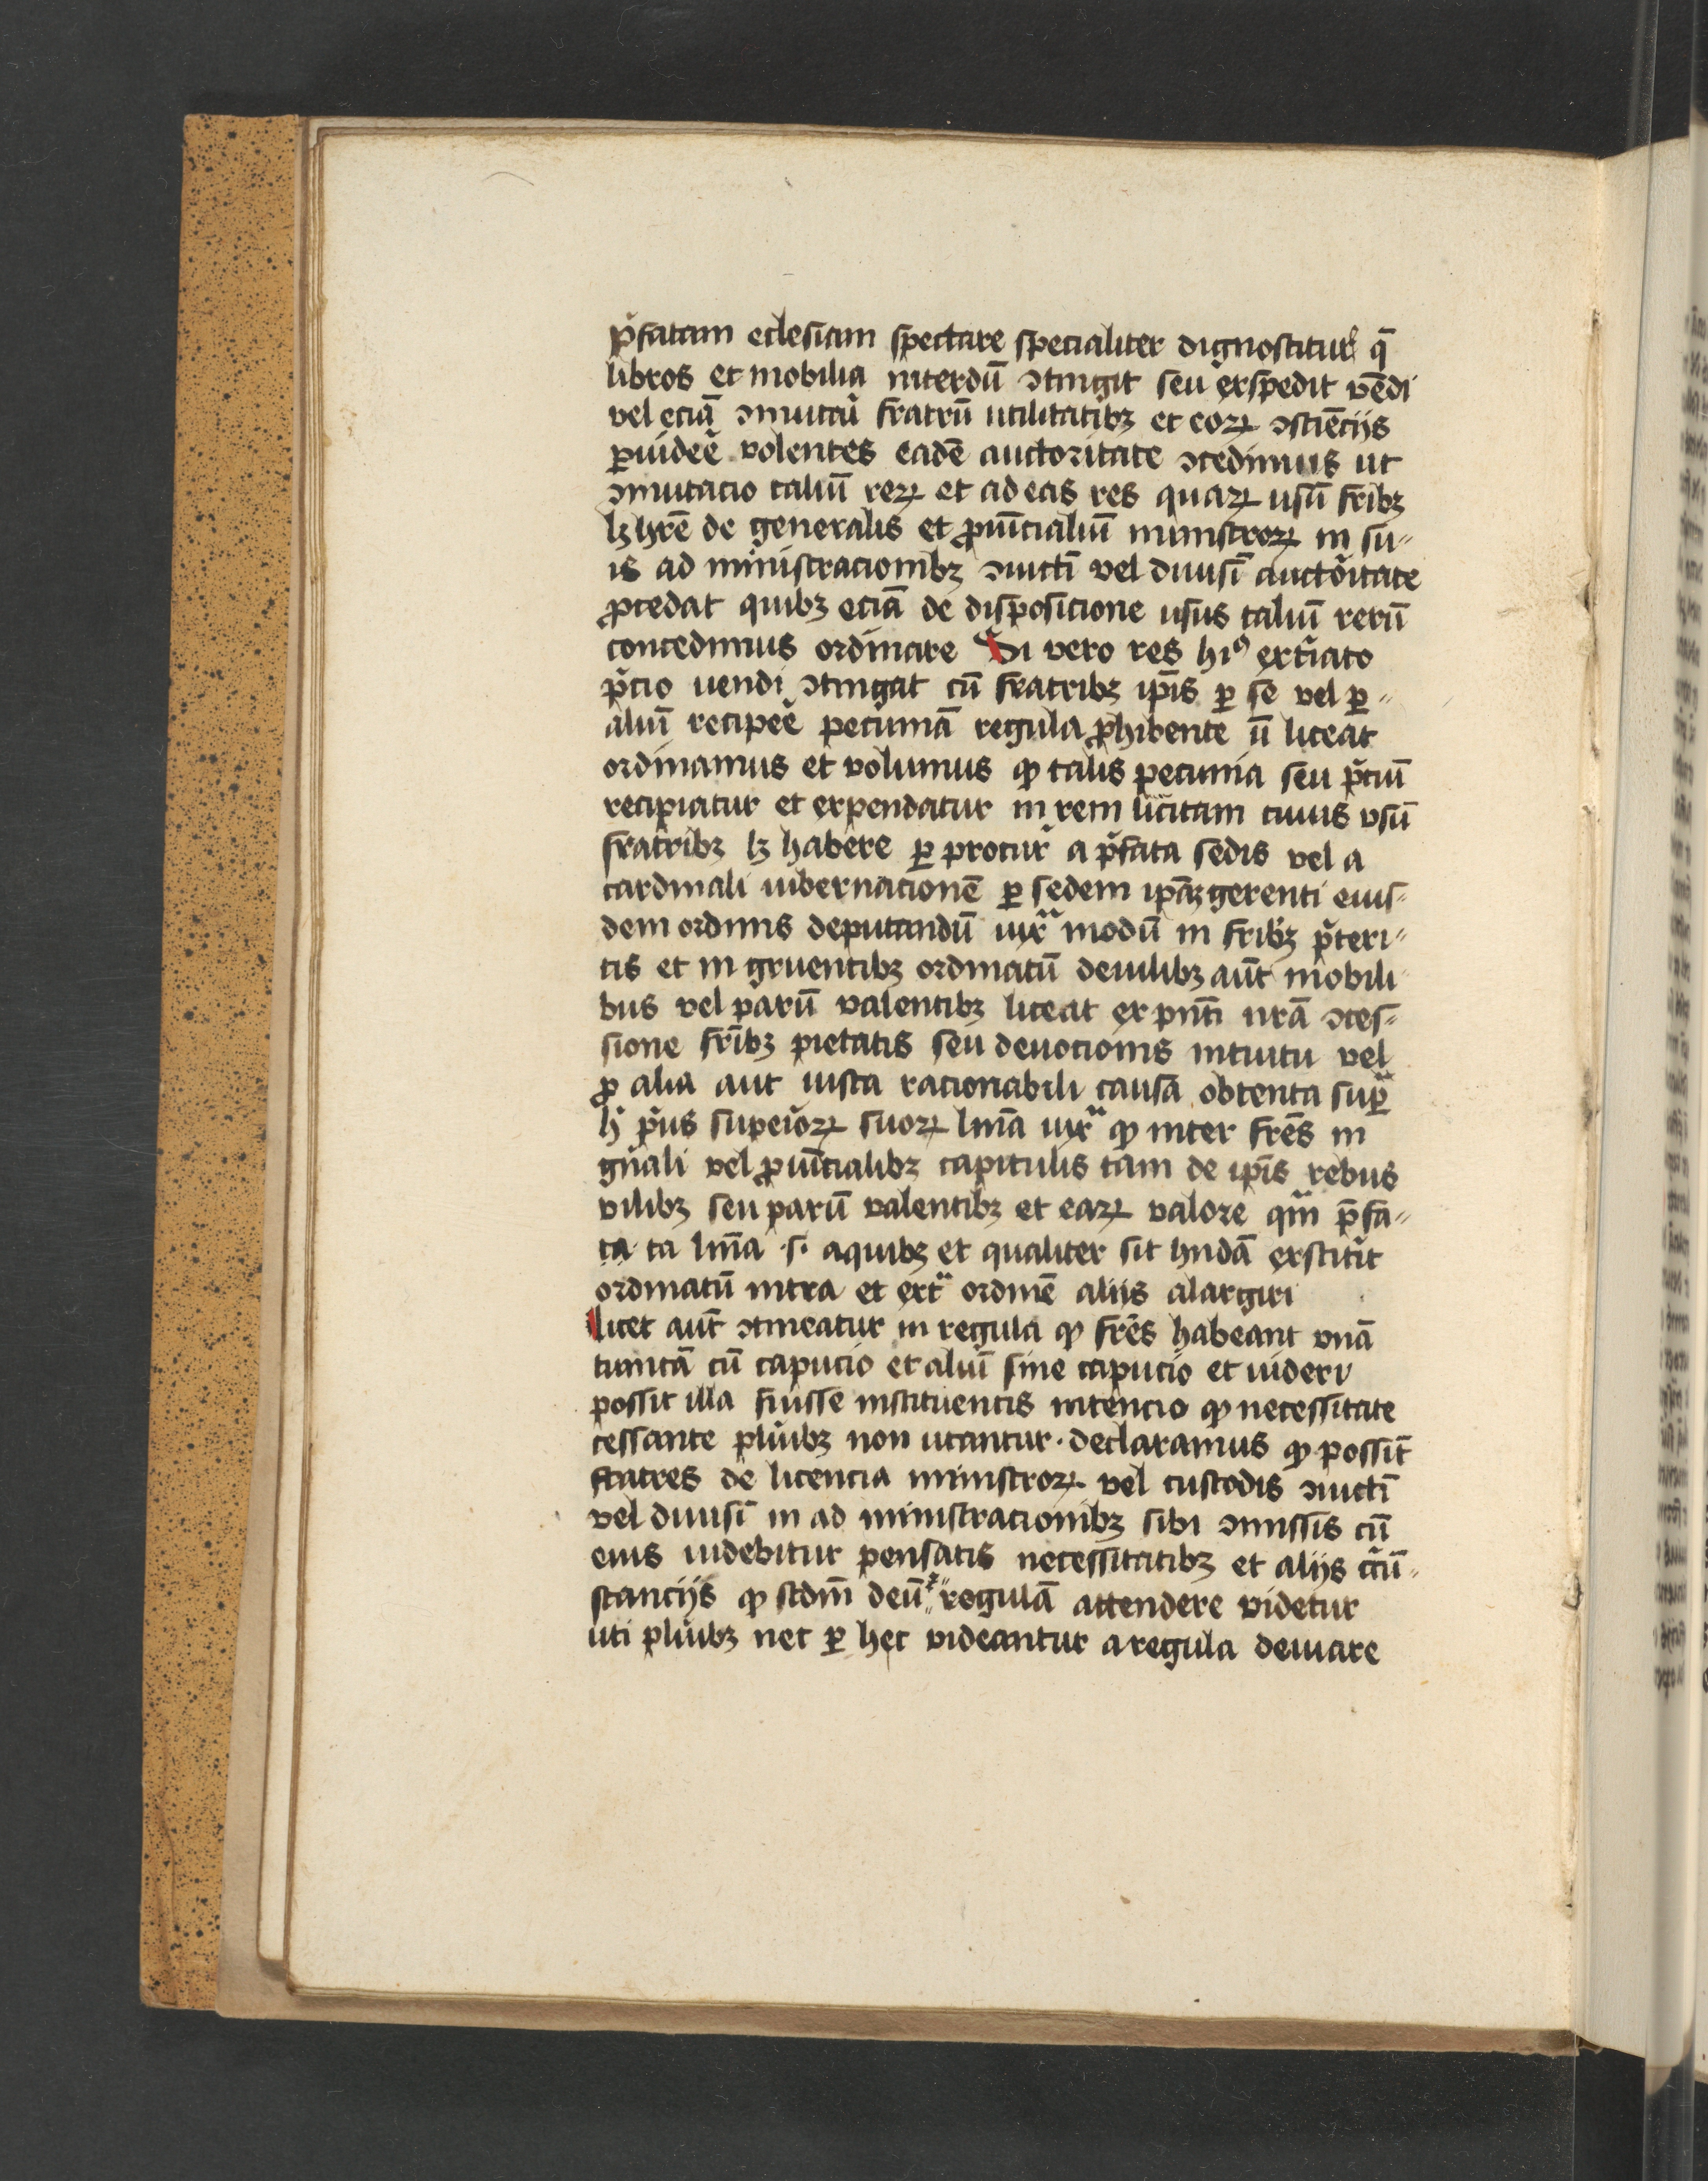 p̄fatam eclesiam spectare specialiter dignoscitur q̄
libros et mobilia interdū ↄtingit seu exspedit vēdi
vel eciā ↄmutari fratrū utilitatibꝫ et eoꝝ ↄsciēcijs
ꝓuidere volentes eadē auctoritate ↄcedimus ut
ↄmutacio taliū reꝝ et ad eas res quaꝝ usū fribꝫ
lꝫ hr̄e de generalis et ꝓuīcialiū ministroꝝ in su-
is ad ministracionibꝫ ↄiūctī vel diuisī auctoritate
ꝓcedat quibꝫ eciā de disposicione usus taliū rerū
concedimus ordinare Si vero res hiꝰ extīato
p̄cio uendi ↄtingat cū fratribꝫ ip̄is ꝑ se vel ꝑ-
aliū recipere pecuniā regula ꝓhibente ū liceat
ordinamus et volumus ꝙ talis pecunia seu p̄ciū
recipiatur et expendatur in rem licitam cuius vsū
fratribꝫ lꝫ habere ꝑ procur̄ a p̄fata sedis vel a
cardinali iubernacionē ꝑ sedem ip̄aꝫ gerenti eius-
dem ordinis deputandū iuxᵃ modū in fribꝫ p̄teri-
tis et in gruentibꝫ ordinatū de uilibꝫ aūt mobili
bus vel parū valentibꝫ liceat ex pn̄ti nr̄ā ↄces-
sione fr̄ibꝫ pietatis seu deuocionis intuitu vel
ꝓ alia aut iusta racionabili causa obtenta suꝑ
h̄ pͥus superioꝝ suoꝝ lin̄a iuxᵃ ꝙ inter fr̄es in
gn̄ali vel ꝓuīcialibꝫ capitulis tam de ip̄is rebus
vilibꝫ seu parū valentibꝫ et eaꝝ valore qᵐ p̄fa-
ta ta lin̄a ·s· a quibꝫ et qualiter sit hn̄dā exstitit
ordinatū intra et extᵃ ordinē aliis alargiri
licet aūt ↄtineatur in regula ꝙ fr̄es habeant vnā
tunicā cū capucio et aliū sine capucio et uideri
possit illa fuisse instituentis intencio ꝙ necessitate
cessante pluͥibꝫ non utantur · declaramus ꝙ possīt
fratres de licencia ministroꝝ vel custodis ↄiūctī
vel diuisī in ad ministracionibꝫ sibi ↄmissis cū
eius uidebitur pensatis necessitatibꝫ et alijs cͥcū-
stancijs ꝙ scdm̄ deū ⁊ regulā attendere videtur
uti pluͥibꝫ nec ꝑ hec videantur a regula deuiare